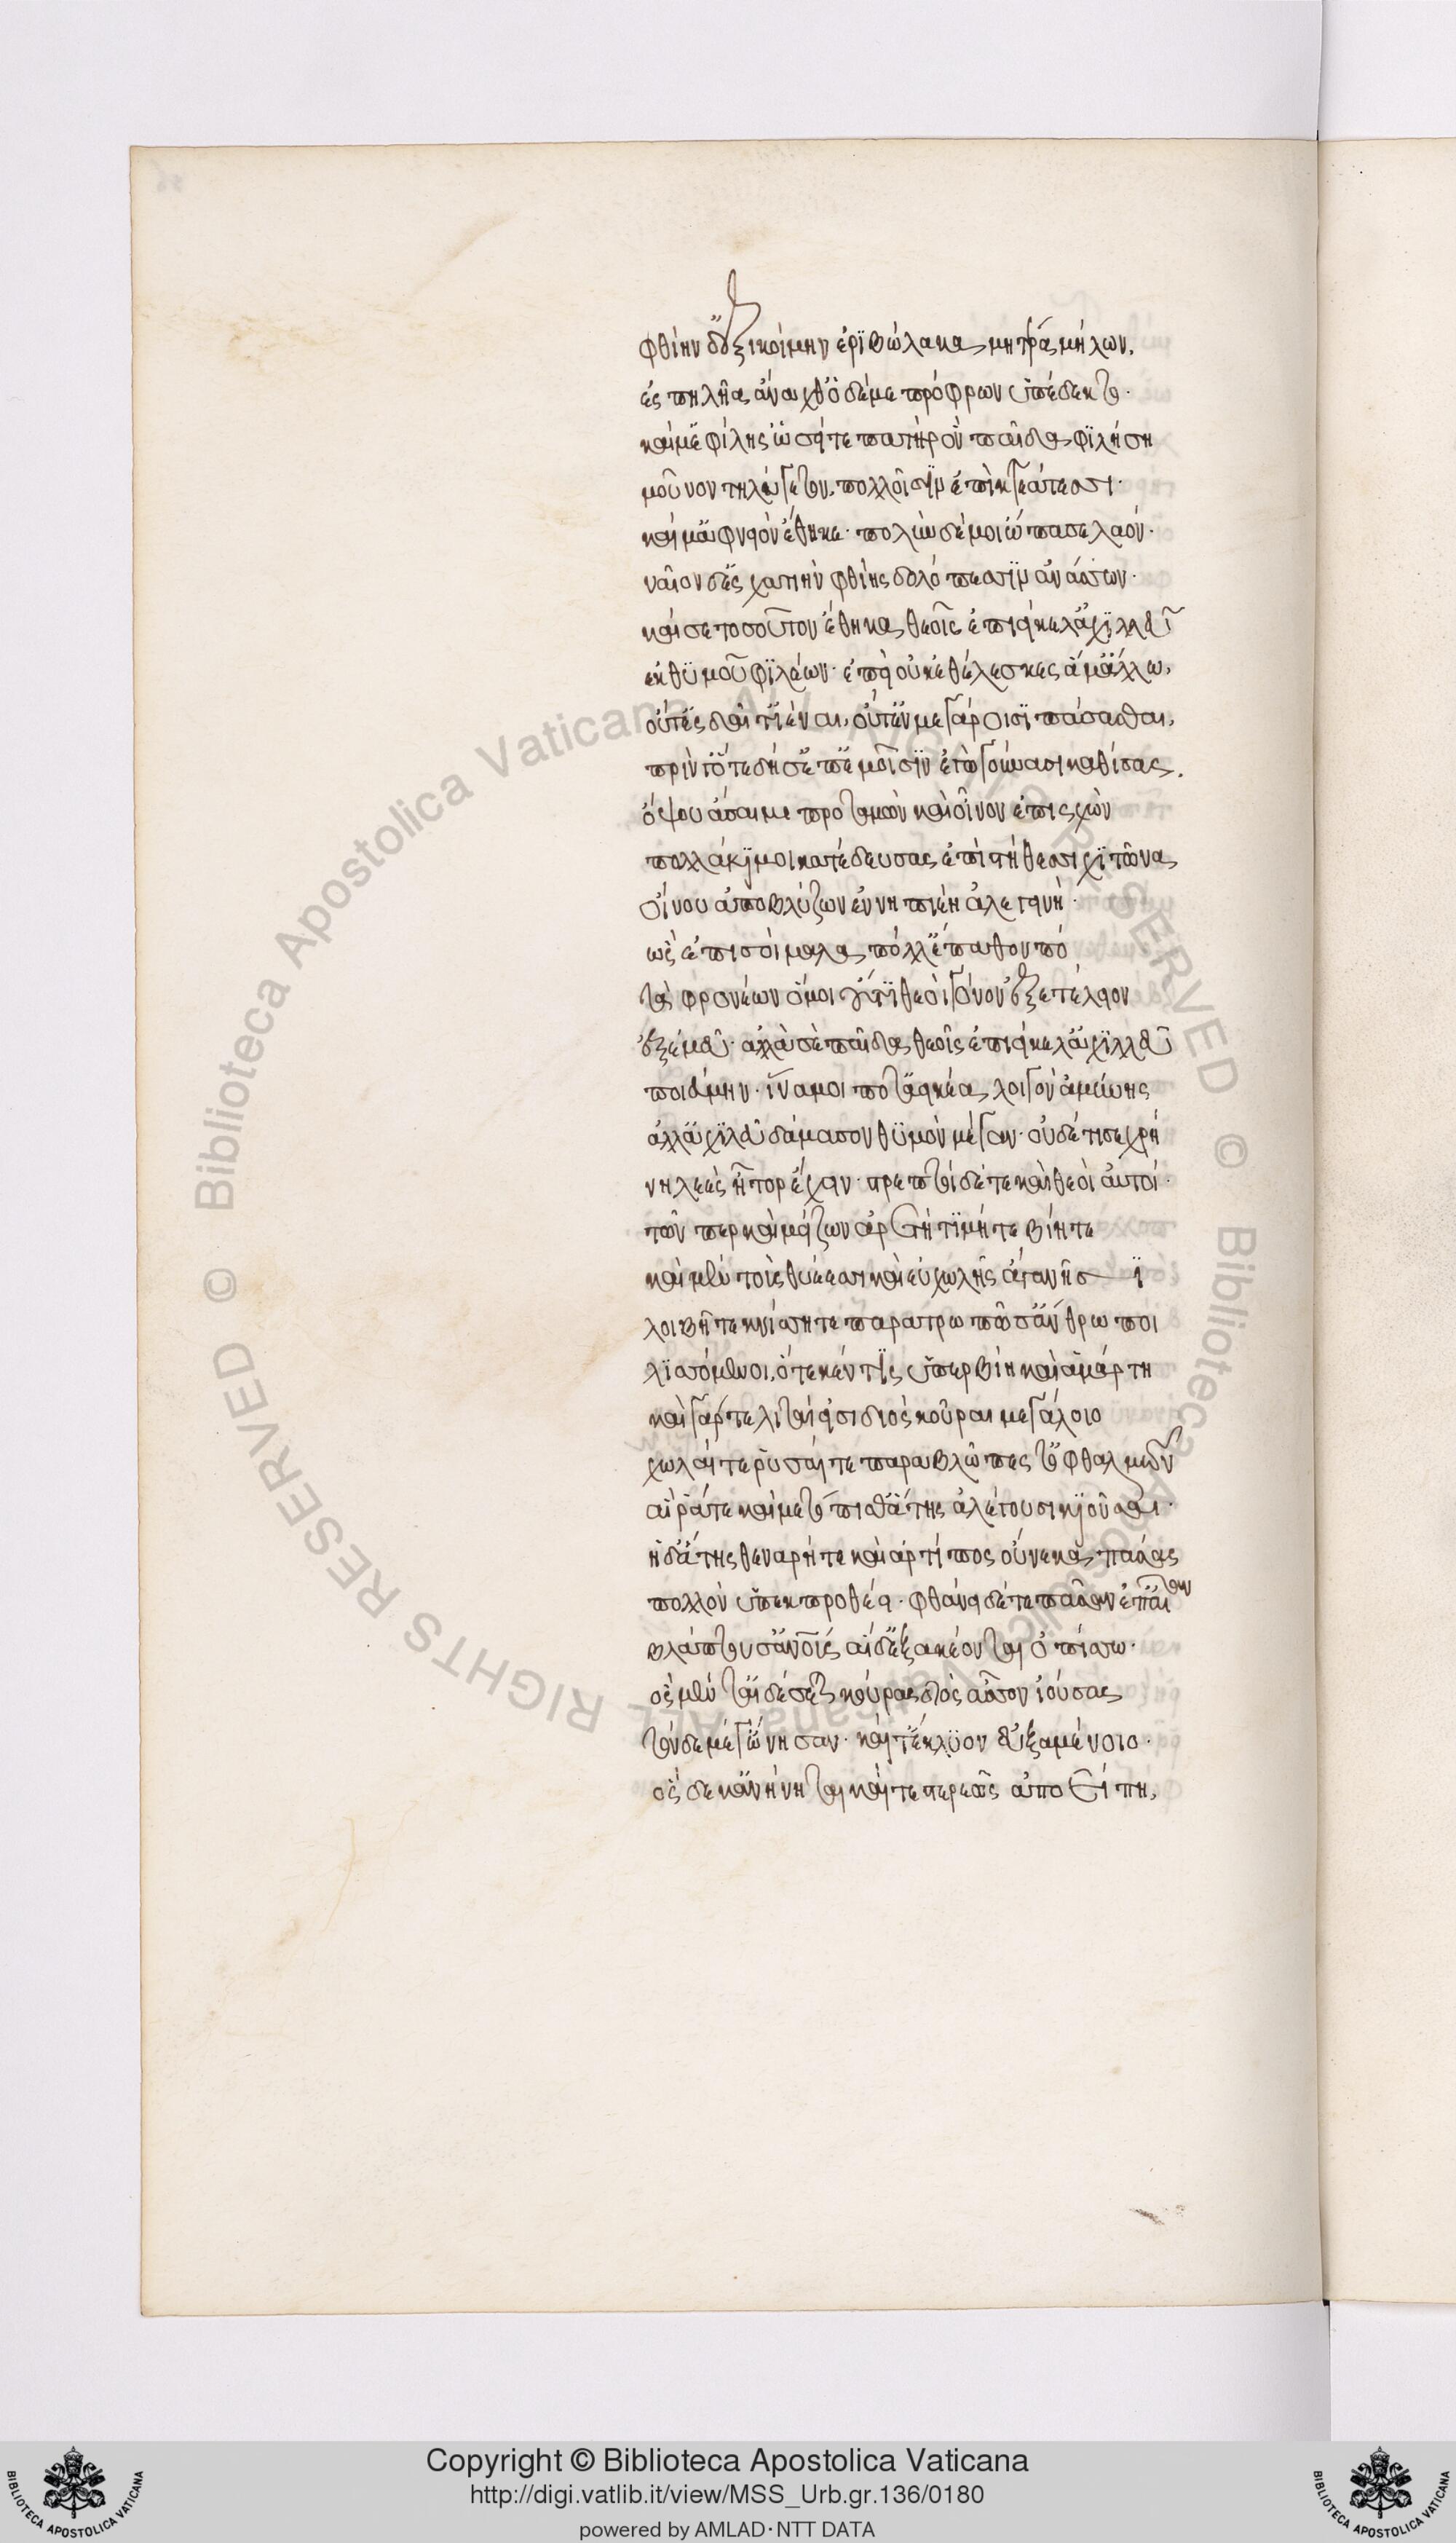 φθίην δ' ἐξικόμην ἐρϊβώλακα μητέρα μήλων,
ἐς πηλῆα ἄναχθ' ὃ δέ με πρόφρων ὑπέδεκτο·
καί μ' ἐφίλησ' ὡσεί τε πατὴρ ὃν παῖδα φϊλήση
μοῦνον τηλύγετον, πολλοῖσϊν ἐπὶ κτεάτεσσι·
καί μ' ἀφνειὸν ἔθηκε· πολὺν δέ μοι ὤπασε λαόν·
ναῖον δ' ἐσχατιὴν φθίης δολόπεσσϊν ἀνάσσων·
καί σε τοσοῦτον ἔθηκα θεοῖς ἐπιείκελ' ἀχϊλλεῦ
ἐκ θϋμοῦ φϊλέων· ἐπεὶ οὐκ ἐθέλεσκες ἅμ' ἄλλω,
οὔτ' ἐς δαῖτ' ἰέναι, οὔτ' ἐν μεγάροισϊ πάσασθαι,
πρίν γ' ὅτε δή σ' ἐπ' ἐμοῖσϊν ἐγὼ γούνασι καθίσας,
ὄψου ἄσαιμι προταμὼν καὶ οἶνον ἐπισχών
πολλάκϊ μοι κατέδευσας ἐπὶ στήθεσσι χϊτῶνα
οἴνου ἀποβλύζων ἐν νηπιέη ἀλεγεινῆ·
ὡς ἐπὶ σοὶ μαλα πόλλ' ἔπαθον πό
τὰ φρονέων ὅ μοι οὔ τϊ θεοὶ γόνον ἐξετέλειον
ἐξ ἐμεῦ· ἀλλὰ σὲ παῖδα θεοῖς ἐπιείκελ' ἀχϊλλεῦ
ποιεύμην· ἵνα μοι ποτ' ἀεικέα λοιγὸν ἀμύνης
ἀλλ' ἀχϊλεῦ δάμασον θϋμὸν μέγαν· οὐδέ τι σε χρή
νηλεὲς ἦτορ ἔχειν· στρεπτοὶ δέ τε καὶ θεοὶ αὐτοί·
τῶν περ καὶ μείζων ἀρετή τϊμή τε βίη τε
καὶ μὲν τοὺς θυέεσσι καὶ εὐχωλῆς ἀγανῆσϊ
λοιβῆ τε κνίσση τε παρατρωπῶσ' ἄνθρωποι
λϊσσόμενοι, ὅτε κέν τϊς ὑπερβίη καὶ ἁμάρτη
καὶ γάρ τε λιταί εἰσι διὸς κοῦραι μεγάλοιο
χωλαί τε ῥυσαί τε παραβλῶπες τ' ὀφθαλμῶν
αἵ ῥά τε καὶ μετόπισθ' ἄτης ἀλέγουσι κϊοῦσαι·
ἡ δ' ἄτη σθεναρή τε καὶ ἀρτίπος οὕνεκα πάσας
πολλὸν ὑπεκπροθέει· φθάνει δέ τε πᾶσαν ἐπ' αἶαν
βλάπτουσ' ἀνθρώπους αἱ δ' ἐξακέονται ὀπίσσω·
ὃς μὲν τ' αἰδέσετ' κούρας διὸς ἆσσον ἰούσας
τόνδε μέγ' ὤνησαν· καί τ' ἔκλϋον εὐξαμένοιο·
ὃς δέ κ' ἀνήνηται καί τε στερεῶς ἀποείπη,
Copyright © Biblioteca Apostolica Vaticana
http://digi.vatlib.it/view/MSS_Urb.gr.136/0180
powered by AMLAD·NTT DATA